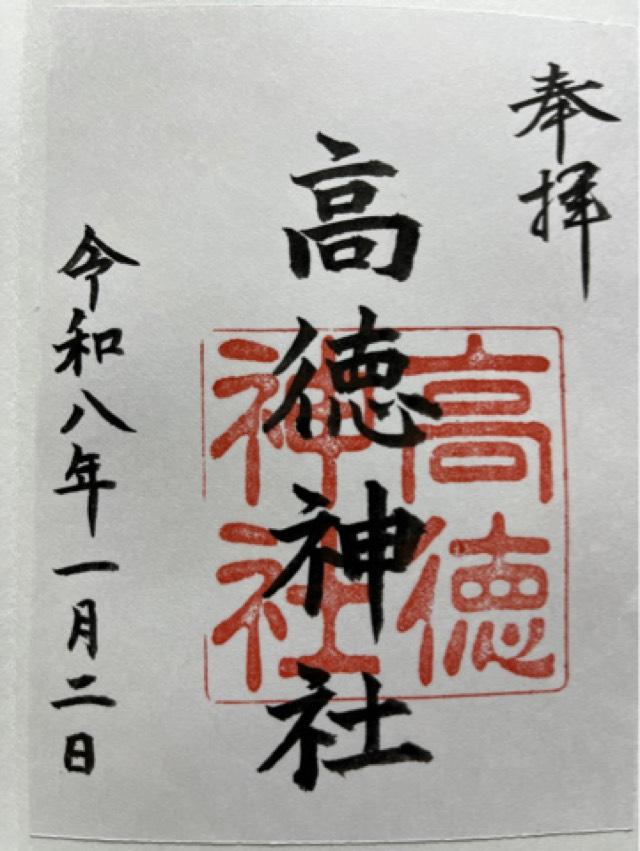 奉拝
高徳神社
高徳
神社
令和八年一月二日